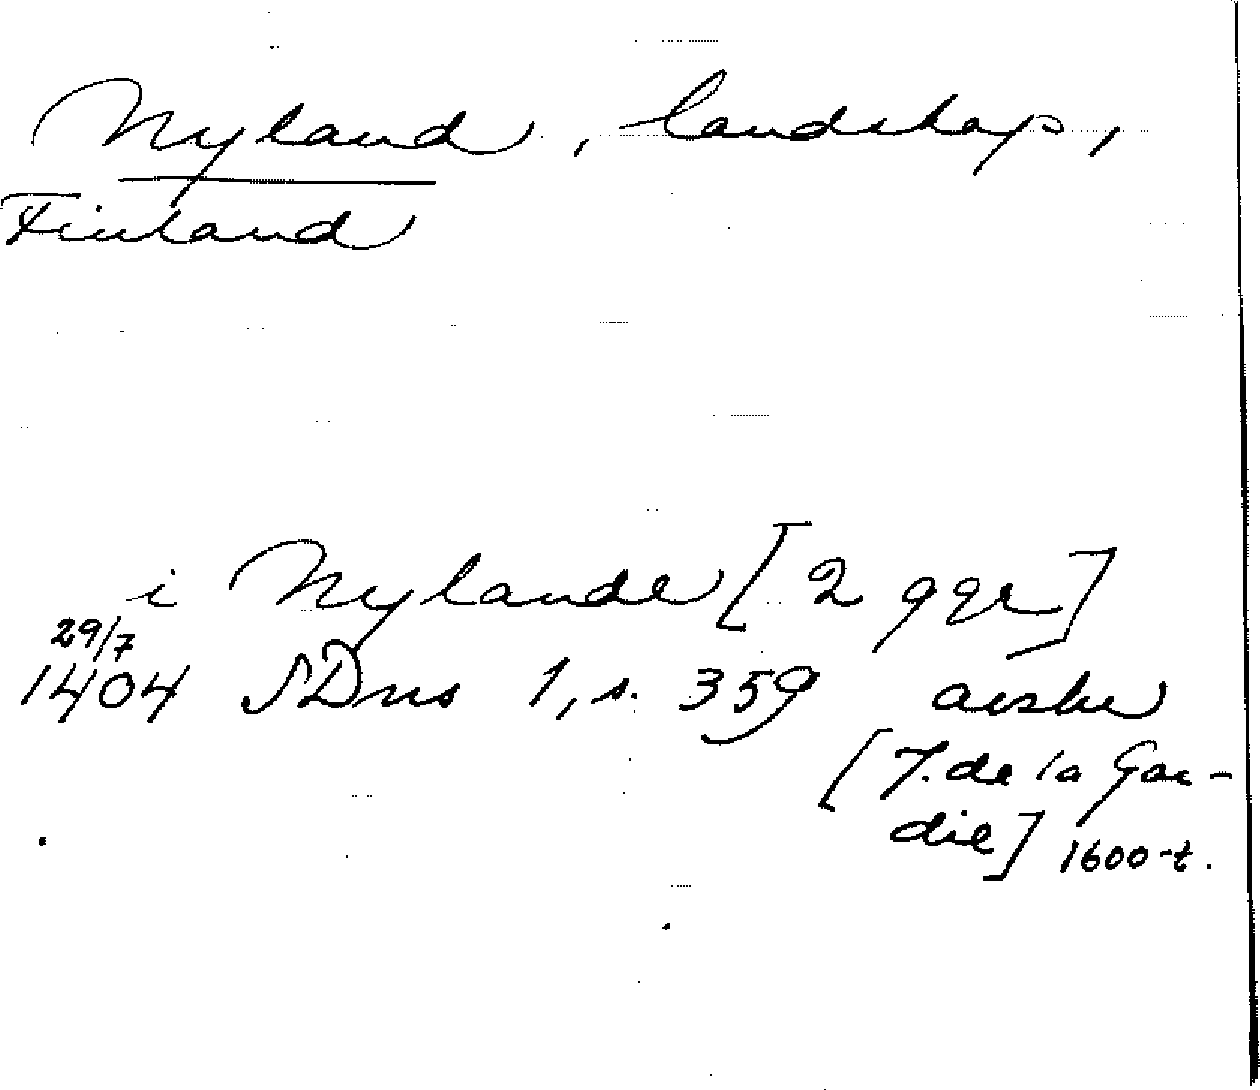 Nyland, landskap,
Finland
i Nylande [2 ggr]
29/7
1404 SDns 1, s. 359 avskr
[J. de la Gar-
die] 1600-t.